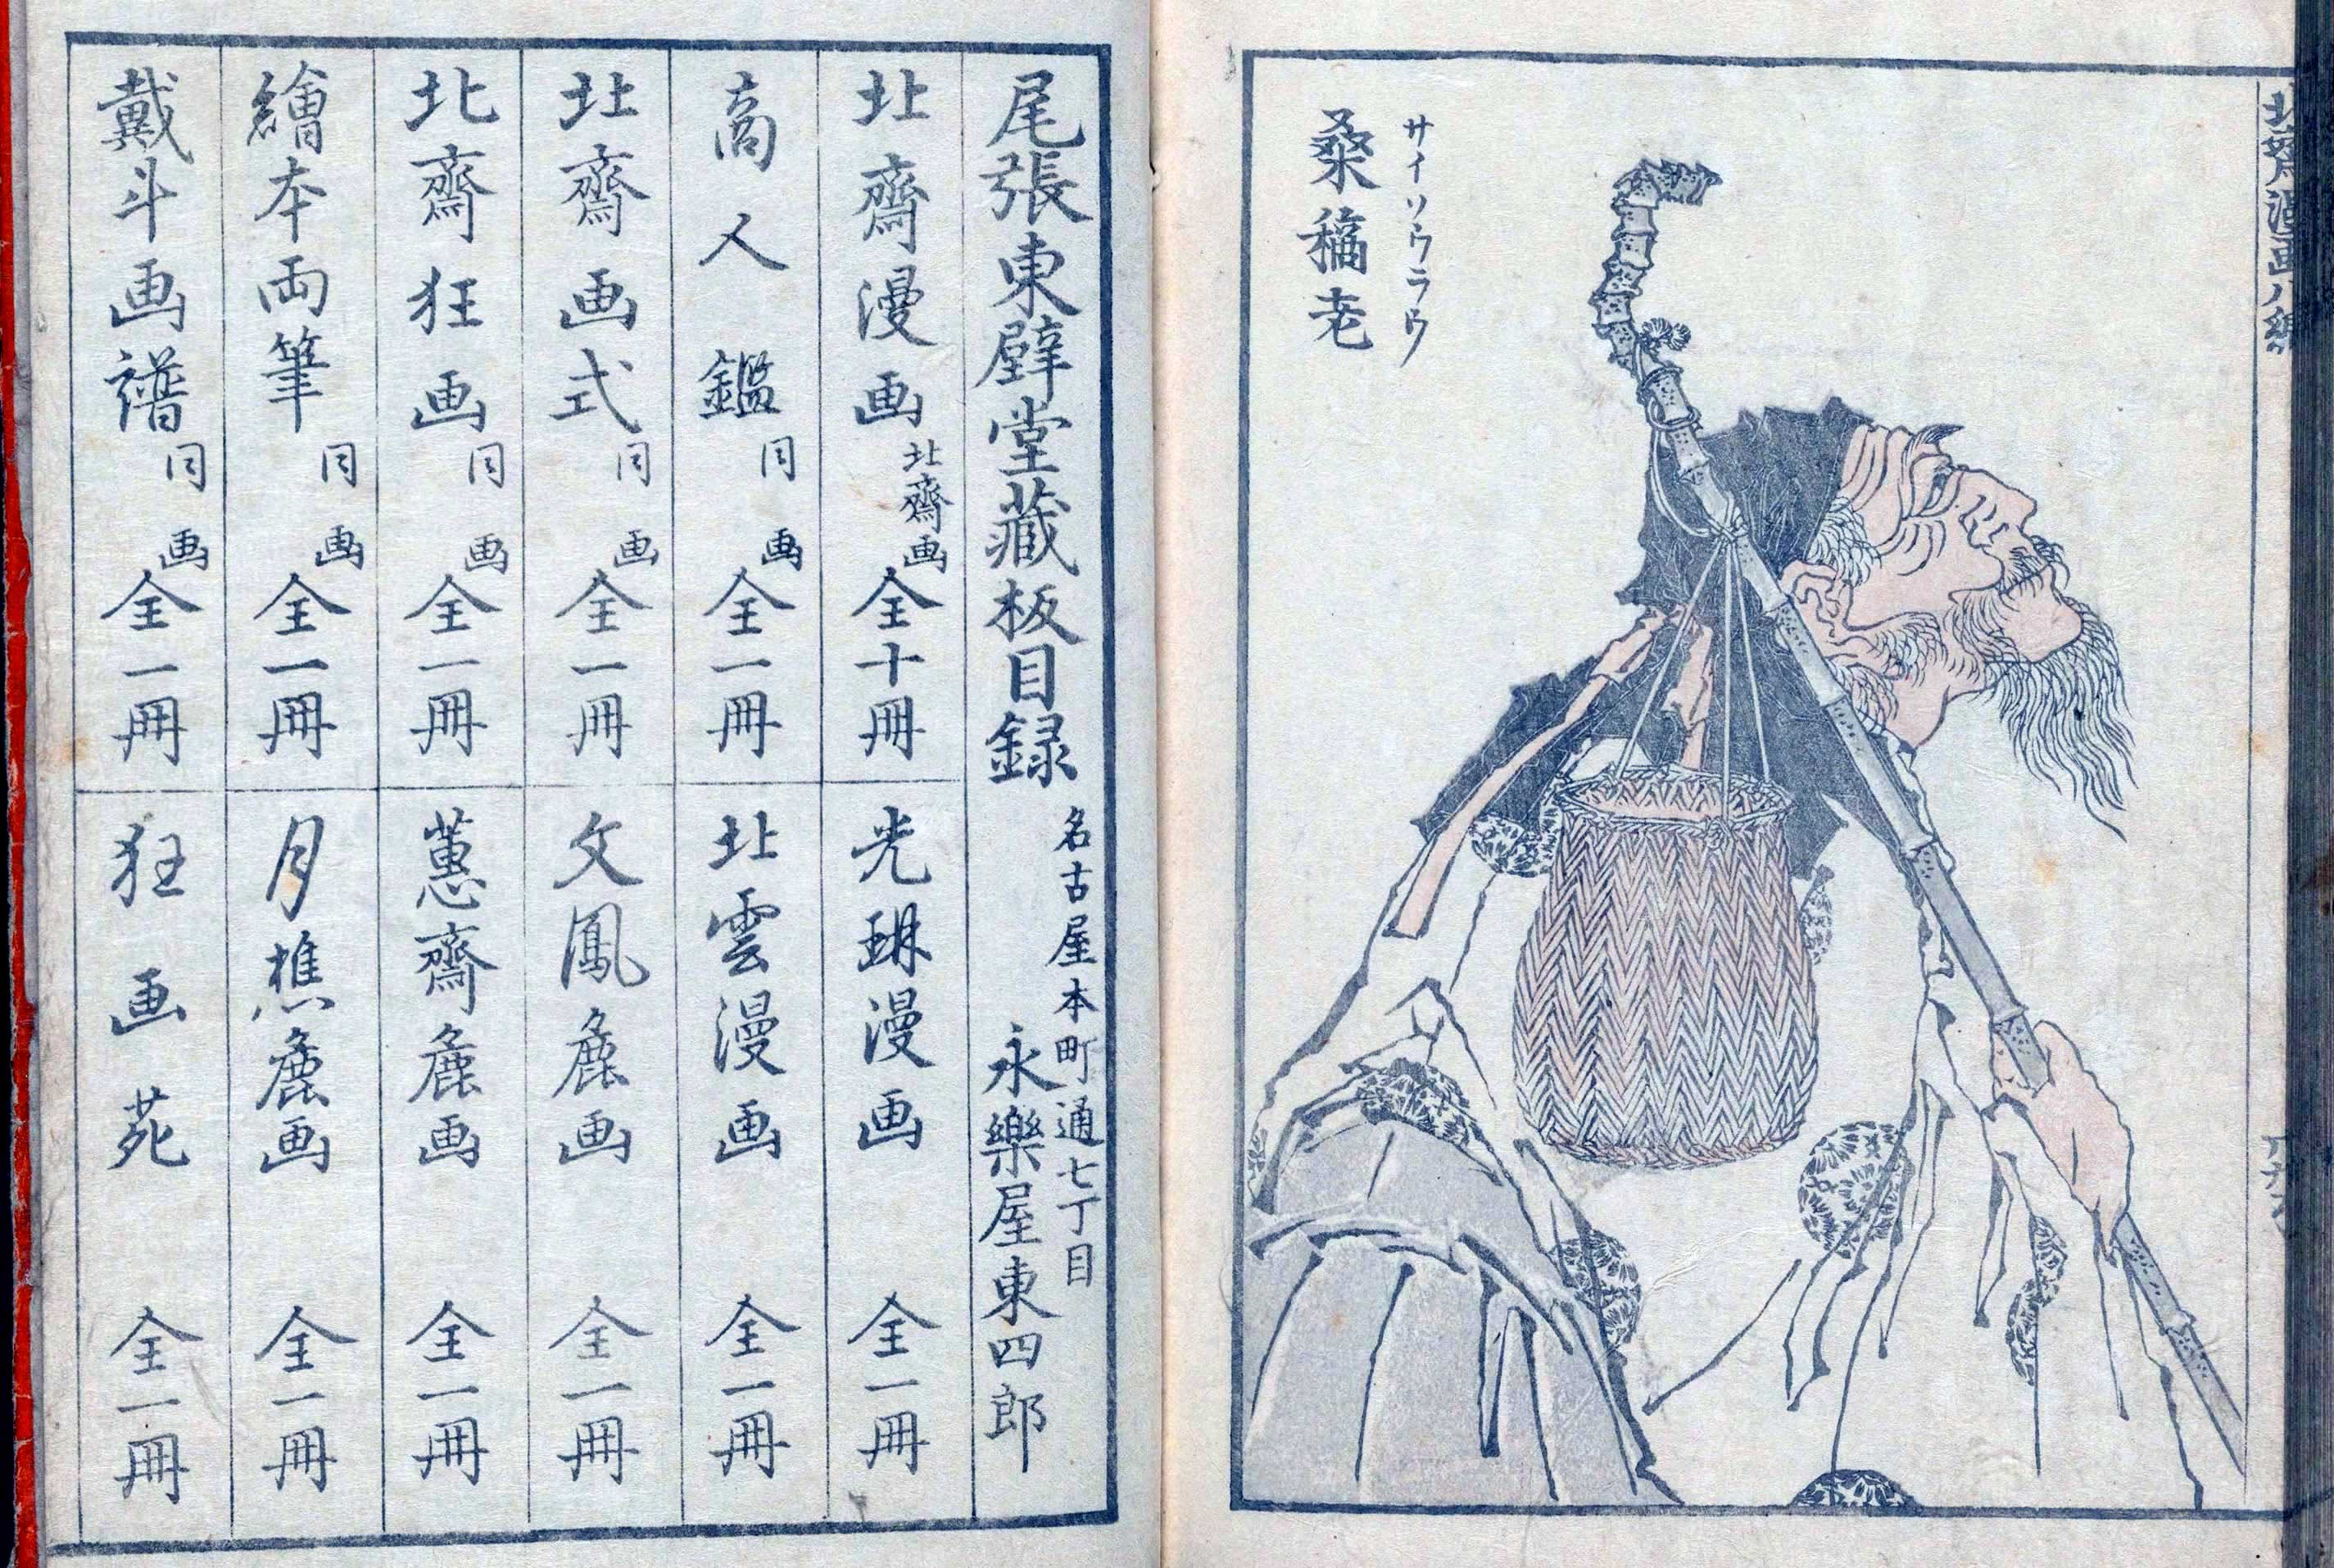 北齋漫画八編
サイソウラウ
桑穐老
尾張東壁堂藏板目録
名古屋本町通七丁目
永樂屋東四郎
北齋漫画 北齋画 全十冊
光琳漫画 全一冊
商人鑑 同画 全一冊
北雲漫画 全一冊
北齋画式 同画 全一冊
文鳳麁画 全一冊
北齋狂画 同画 全一冊
蕙齋麁画 全一冊
繪本両筆 同画 全一冊
月樵麁画 全一冊
戴斗画譜 同画 全一冊
狂画苑 全一冊